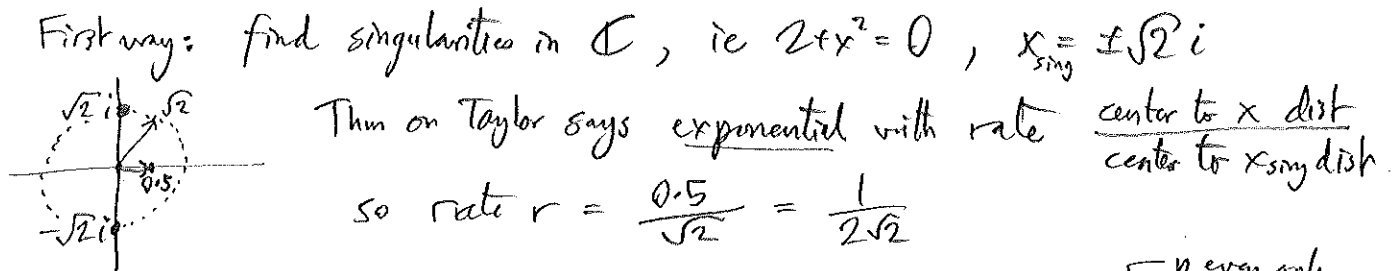 First way: find singularities in ℂ, ie 2+x² = 0, x_sing = ±√2 i
√2 i √2
Thm on Taylor says exponential with rate center to x dist / center to x_sing dist.
0.5
-√2 i
so rate r = 0.5/√2 = 1/2√2
n even only